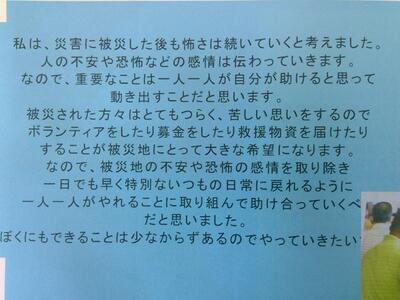 私は、災害に被災した後も怖さは続いていくと考えました。
人の不安や恐怖などの感情は伝わっていきます。
なので、重要なことは一人一人が自分が助けると思って
動き出すことだと思います。
被災された方々はとてもつらく、苦しい思いをするので
ボランティアをしたり募金をしたり救援物資を届けたり
することが被災地にとって大きな希望になります。
なので、被災地の不安や恐怖の感情を取り除き
一日でも早く特別ないつもの日常に戻れるように
一人一人がやれることに取り組んで助け合っていくべ
だと思いました。
ぼくにもできることは少なからずあるのでやっていきたい